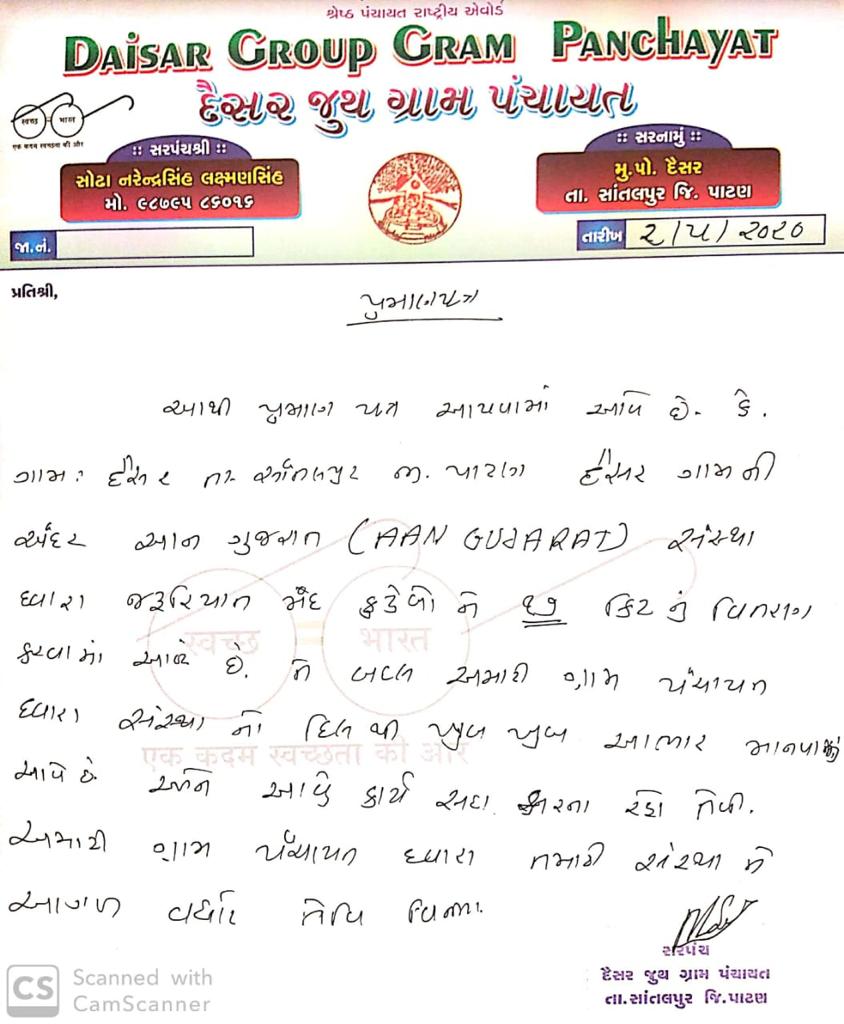 શ્રેષ્ઠ પંચાયત રાષ્ટ્રીય એવોર્ડ
DAISAR GROUP GRAM PANCHAYAT
દૈસર જુથ ગ્રામ પંચાયત
स्वच्छ भारत
एक कदम स्वच्छता की ओर
:: સરપંચશ્રી ::
સોઢા નરેન્દ્રસિંહ લક્ષ્મણસિંહ
મો. ૯૮૭૯૫ ૮૬૦૧૬
:: સરનામું ::
મુ.પો. દૈસર
તા. સાંતલપુર જિ. પાટણ
જા.નં.
તારીખ ૨/૫/૨૦૨૦
પ્રતિશ્રી,
પ્રમાણપત્ર
આથી પ્રમાણ પત્ર આપવામાં આવે છે. કે.
ગામ: દૈસર તા. સાંતલપુર જી. પાટણ દૈસર ગામ ની
અંદર આન ગુજરાત (AAN GUJARAT) સંસ્થા
ધ્વારા જરૂરિયાત મંદ કુટુંબો ને ૧૭ કિટ નું વિતરણ
કરવામાં આવે છે. તે બદલ અમારી ગ્રામ પંચાયત
ધ્વારા સંસ્થા નો દિલ થી ખુબ ખુબ આભાર માનવામાં
આવે છે અને આવું કાર્ય સદા કરતા રહો તેવી.
અમારી ગ્રામ પંચાયત ધ્વારા તમારી સંસ્થા ને
આગળ વધારે તેવિ
स्वच्छ भारत
एक कदम स्वच्छता की ओर
સરપંચ
દૈસર જુથ ગ્રામ પંચાયત
તા.સાંતલપુર જિ.પાટણ
CS Scanned with
CamScanner